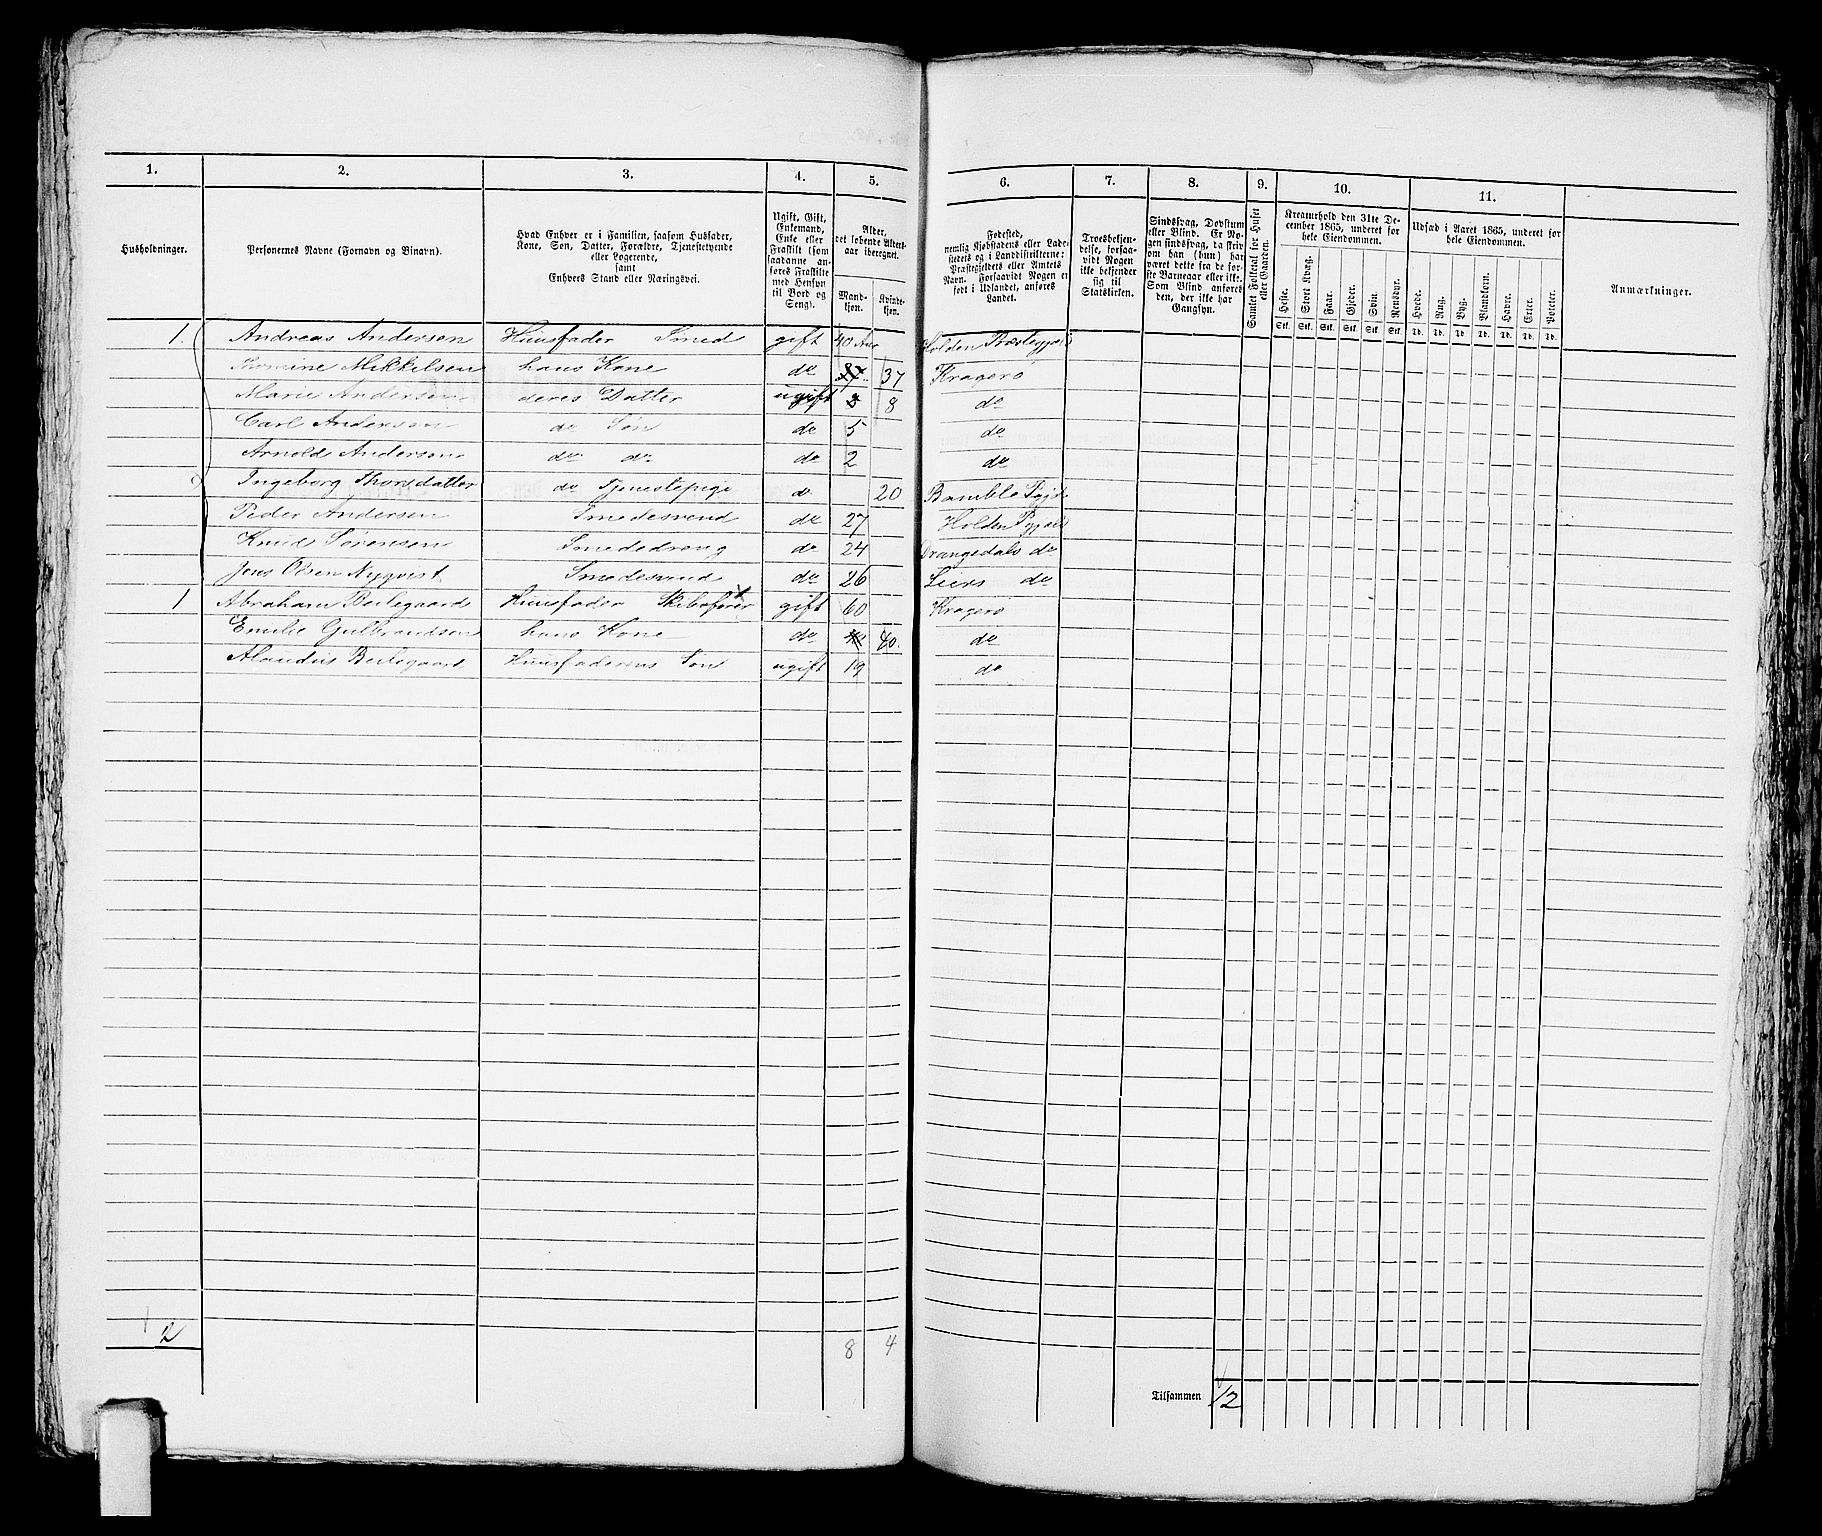 1. 2. 3. 4. 5. 6. 7. 8. 9. 10. 11.
Husholdninger.
Personernes Navne (Fornavn og Binavn).
Hvad Enhver er i Familien, saasom Husfader,
Kone, Søn, Datter, Forældre, Tjenestetyende
eller Logerende,
samt
Enhvers Stand eller Næringsvei.
Ugift, Gift,
Enkemand,
Enke eller
Fraskilt (som
saadanne an-
føres Fraskilte
med Hensyn
til Bord og
Seng).
Alder,
det løbende Alders-
aar iberegnet.
Mand-
kjøn.
Kvinde-
kjøn.
Fødested,
nemlig Kjøbstadens eller Lade-
stedets og i Landdistrikterne:
Præstegjeldets eller Amtets
Navn. Forsaavidt Nogen er
født i Udlandet, anføres
Landet.
Troesbekjen-
delse, forsaa-
vidt Nogen
ikke bekjender
sig til
Statskirken.
Sindssvag, Døvstum
eller Blind. Er No-
gen sindssvag, da skriv
om han (hun) har
været dette fra de før-
ste Barneaar eller ikke.
Som Blind anføres
den, der ikke har
Gangsyn.
Samlet Folketal for Huset
eller Gaarden.
Kreaturhold den 31te De-
cember 1865, underet for
hele Eiendommen.
Heste. Stort Kvæg. Faar. Gjeder. Svin. Rensdyr.
Stk. Stk. Stk. Stk. Stk. Stk.
Udsæd i Aaret 1865, underet for
hele Eiendommen.
Hvede. Rug. Byg. Blandkorn. Havre. Erter. Poteter.
Td. Td. Td. Td. Td. Td. Td.
Anmærkninger.
1. Andreas Andersen Huusfader Smed gift 40 Aar Holden
Mikkelsen hans Kone do 37 Kragerø
Marie Andersen deres Datter ugift 8 do
Carl Andersen do Søn do 5 do
Arnold Andersen do do do 2 do
Ingeborg Thorsdatter do Tjenestepige do 20 Bamble
Peder Andersen Smedesvend do 27 Holden
Knud Sørensen Smededreng do 24 Drangedals do
Jens Olsen Nyqvist Smedesvend do 26 do
1 Abraham Huusfader Skibsfører gift 60 Kragerø
Emilie Gulbrandsen hans Kone do 40. do
Huusfaderens Søn ugift 19 do
2 8 4
Tilsammen 12